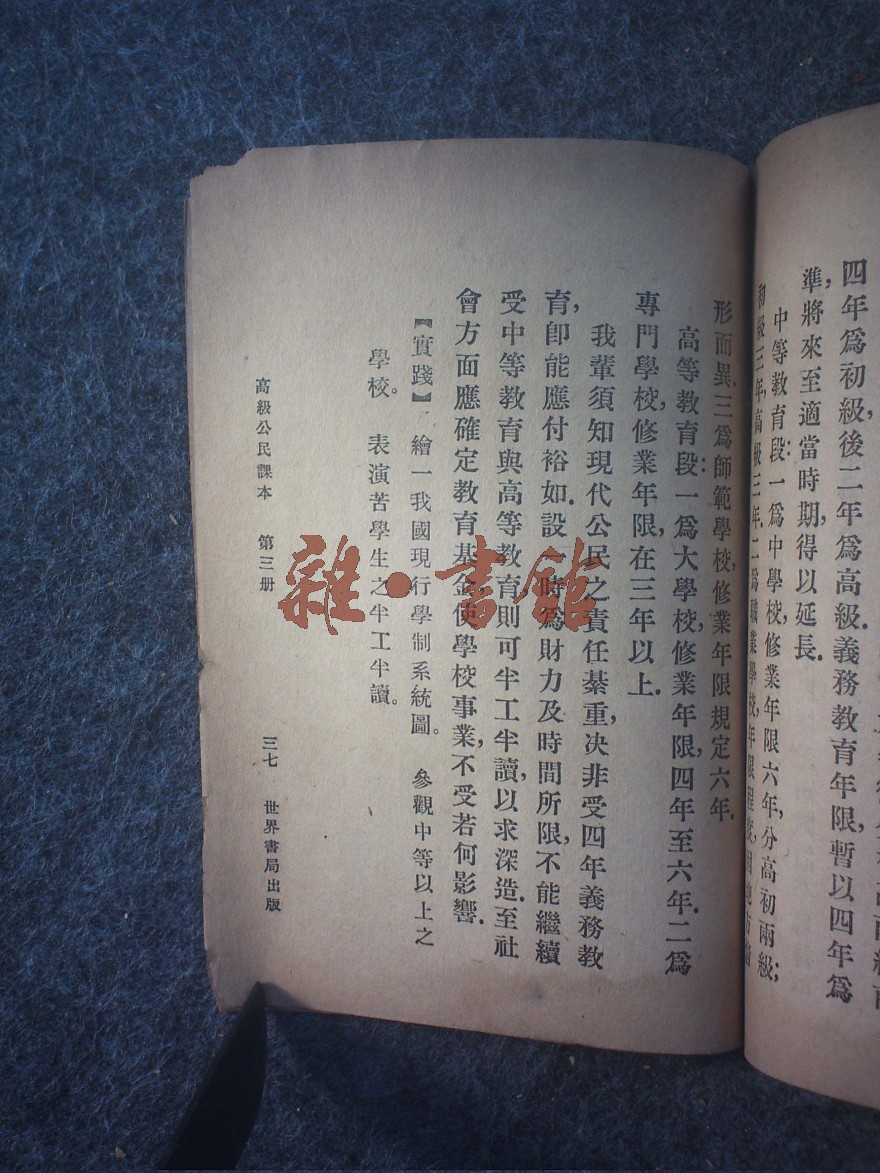 四年爲初級，後二年爲高級．義務教育年限，暫以四年爲
準，將來至適當時期，得以延長．
中等教育段：一爲中學校，修業年限六年，分高初兩級；
初級三年，高級三年．二爲職業學校，年限程度，因地方
形而異．三爲師範學校，修業年限規定六年．
高等教育段：一爲大學校，修業年限，四年至六年．二爲
專門學校，修業年限，在三年以上．
我輩須知現代公民之責任綦重，决非受四年義務教
育，卽能應付裕如．設一時爲財力及時間所限，不能繼續
受中等教育與高等教育，則可半工半讀，以求深造．至社
會方面，應確定教育基金，使學校事業，不受若何影響．
【實踐】 繪一我國現行學制系統圖。 參觀中等以上之
學校。 表演苦學生之半工半讀。
高級公民課本 第三册 三七 世界書局出版
雜·書館